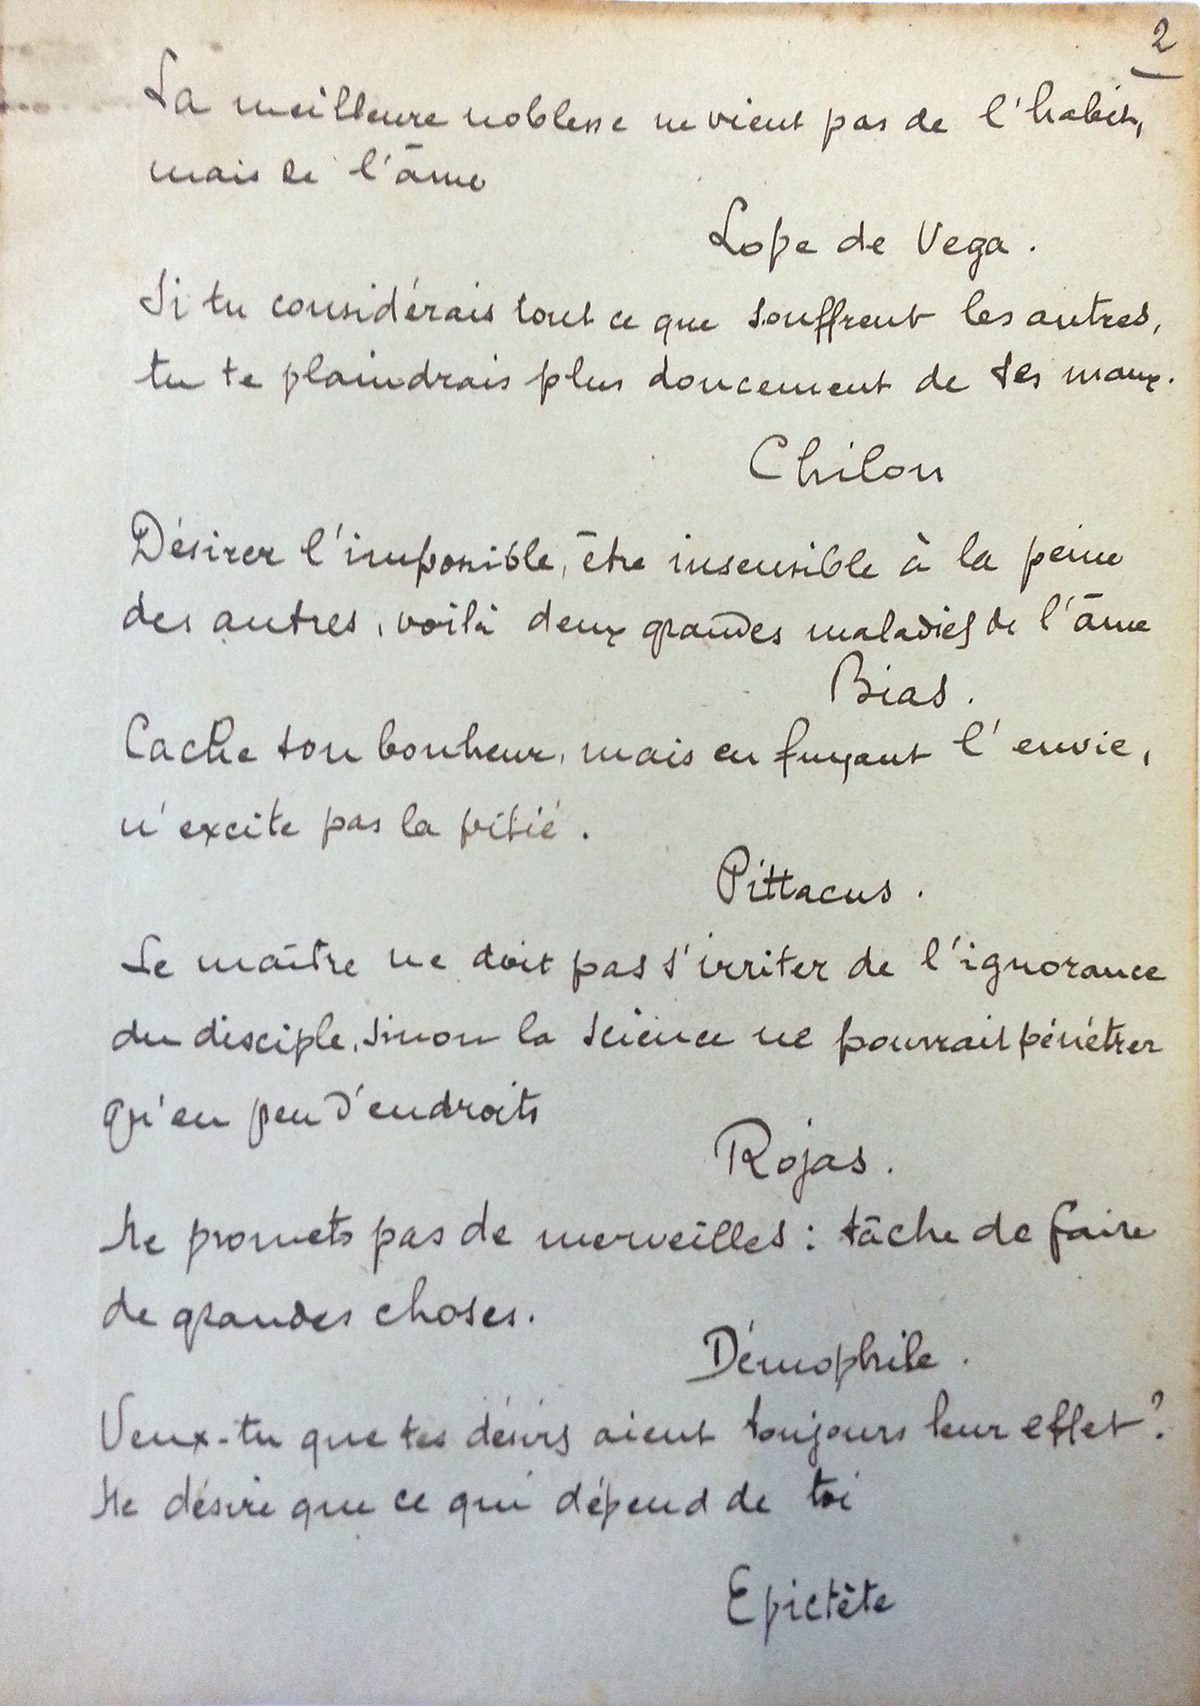 2
La meilleure noblesse ne vient pas de l'habit,
mais de l'âme
Lope de Vega.
Si tu considérais tout ce que souffrent les autres,
tu te plaindrais plus doucement de tes maux.
Chilon
Désirer l'impossible, être insensible à la peine
des autres, voilà deux grandes maladies de l'âme
Bias.
Cache ton bonheur, mais en fuyant l'envie,
n'excite pas la pitié.
Pittacus.
Le maître ne doit pas s'irriter de l'ignorance
du disciple, sinon la science ne pourrait pénétrer
qu'en peu d'endroits
Rojas.
Ne promets pas de merveilles : tâche de faire
de grandes choses.
Démophile.
Veux-tu que tes désirs aient toujours leur effet ?
Ne désire que ce qui dépend de toi
Epictète